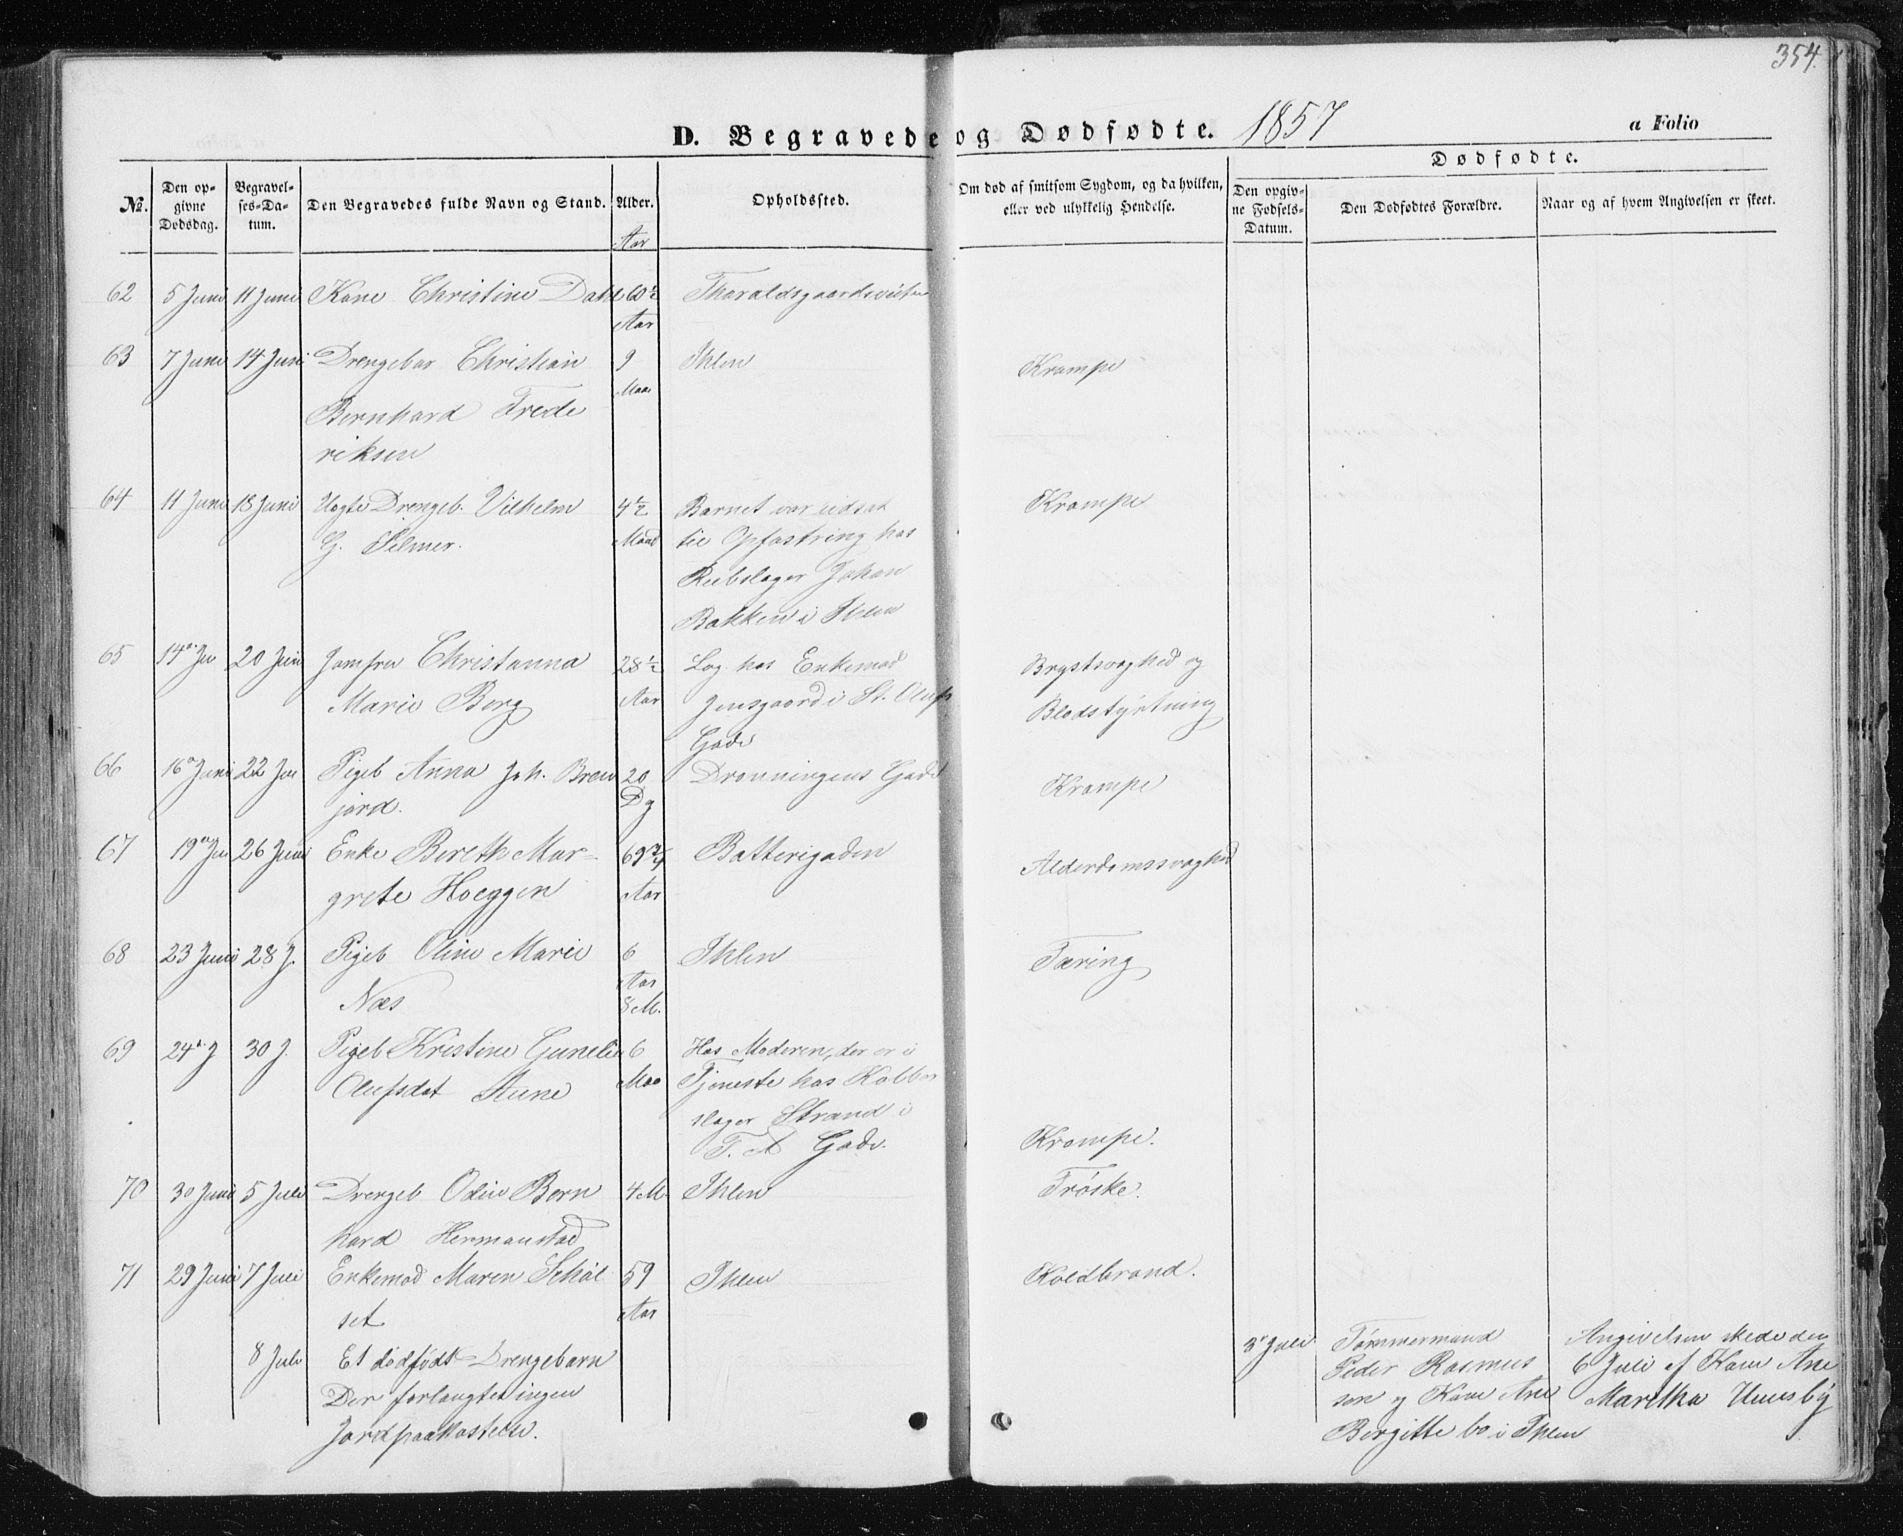 354.
D. Begravede og Dødfødte. 1857
a Folio
Dødfødte.
№.
Den opgivne Dødsdag.
Begravelses-Datum.
Den Begravedes fulde Navn og Stand.
Alder.
Opholdssted.
Om død af smitsom Sygdom, og da hvilken, eller ved ulykkelig Hendelse.
Den opgivne Fødsels-Datum.
Den Dødfødtes Forældre.
Naar og af hvem Angivelsen er skeet.
Aar
62 5 Juni 11 Juni Kone Christine Dahl 60½ Tharaldsgaards
Aar
63 7 Juni 14 Juni Drengebar Christian 9 Ihlen Krampe
Bernhard Frede Maa
riksen
64 11 Juni 18 Juni Uægte Drengeb. Vilhelm 4½ Barnet var udsat Krampe
G. Silmer. Maad til Opfostring hos
Reebslager Johan
Bakken i Ihlen
65 14 Ju 20 Juni Jomfru Christianna 28½ Log. hos Enkemad Brystsvaghed og
Marie Borg Aar Jensgaard i St. Olufs Blodstyrtning
Gade
66 16 Juni 22 Jun Pigeb Anna Joh. Brei 20 Dronningens Gade Krampe
jord. Dg
67 19 Ju 26 Juni Enke Bereth Mar- 69¾ Batterigaden Alderdomssvaghed
grete Hoeggen Aar
68 23 Juni 28 J. Pigeb Oline Marie 6 Ihlen Tæring
Næs Aar
8 M.
69 24 J 30 J. Pigeb Kristine Guneli 6 Hos Moderen, der er i
Olufsdat Aune Maa Tjeneste hos Kobber
slager Strand i
T. A Gade. Krampe.
70 30 Juni 5 Juli Drengeb Odin Bern 4 M. Ihlen Trøske.
hard Hermanstad
71 29 Juni 7 Juli Enkemad Maren Schøl 59 Ihlen Koldbrand.
set Aar
8 Juli Et dødfødt Drengebarn 3 Juli Tømmermand Angivelsen skede den
Der forlangtes ingen Peder Rasmus 6 Juli af Kone Ane
Jordpaakastelse. sen og Kone Ane Maretha
Bergitte bo i Ihlen